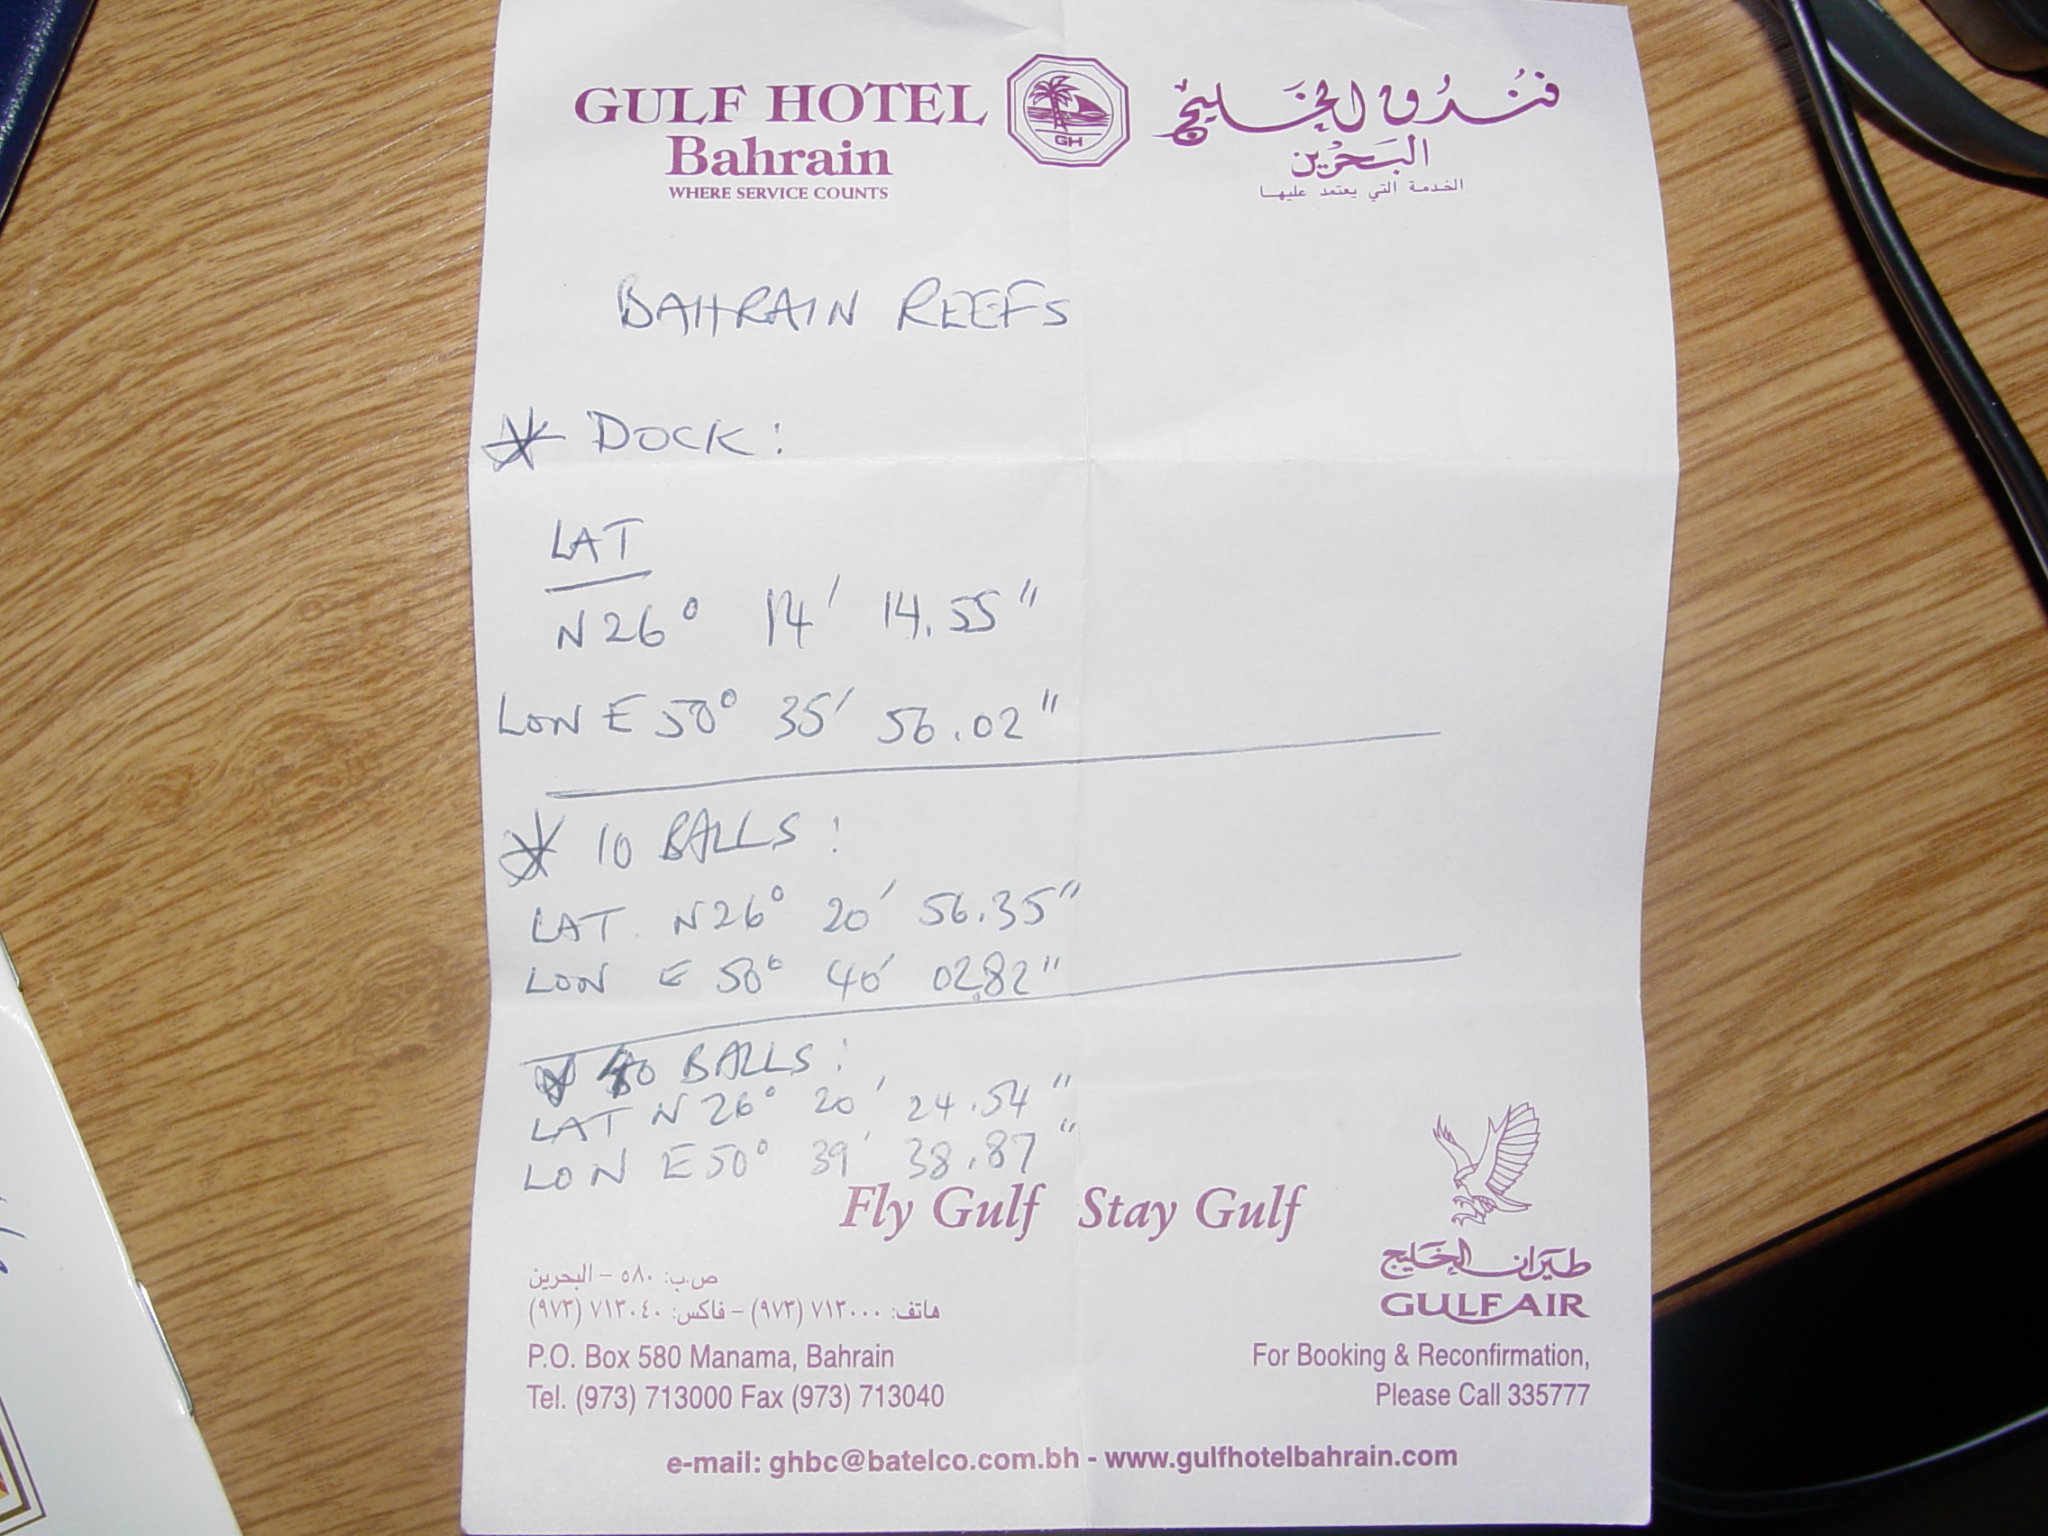 GULF HOTEL
Bahrain
WHERE SERVICE COUNTS
GH
فُنْدُق الخَليج
البَحْرَين
الخدمة التي يعتمد عليها
BAHRAIN REEFS
* DOCK:
LAT
N 26° 14' 14.55"
LON E 50° 35' 56.02"
* 10 BALLS:
LAT. N 26° 20' 56.35"
LON E 50° 40' 02.82"
40 BALLS:
LAT N 26° 20' 24.54"
LON E 50° 39' 38.87"
Fly Gulf Stay Gulf
طيران الخليج
GULF AIR
ص.ب: ٥٨٠ – البحرين
هاتف: ٧١٣٠٠٠ (٩٧٣) – فاكس: ٧١٣٠٤٠ (٩٧٣)
P.O. Box 580 Manama, Bahrain
Tel. (973) 713000 Fax (973) 713040
For Booking & Reconfirmation,
Please Call 335777
e-mail: ghbc@batelco.com.bh - www.gulfhotelbahrain.com